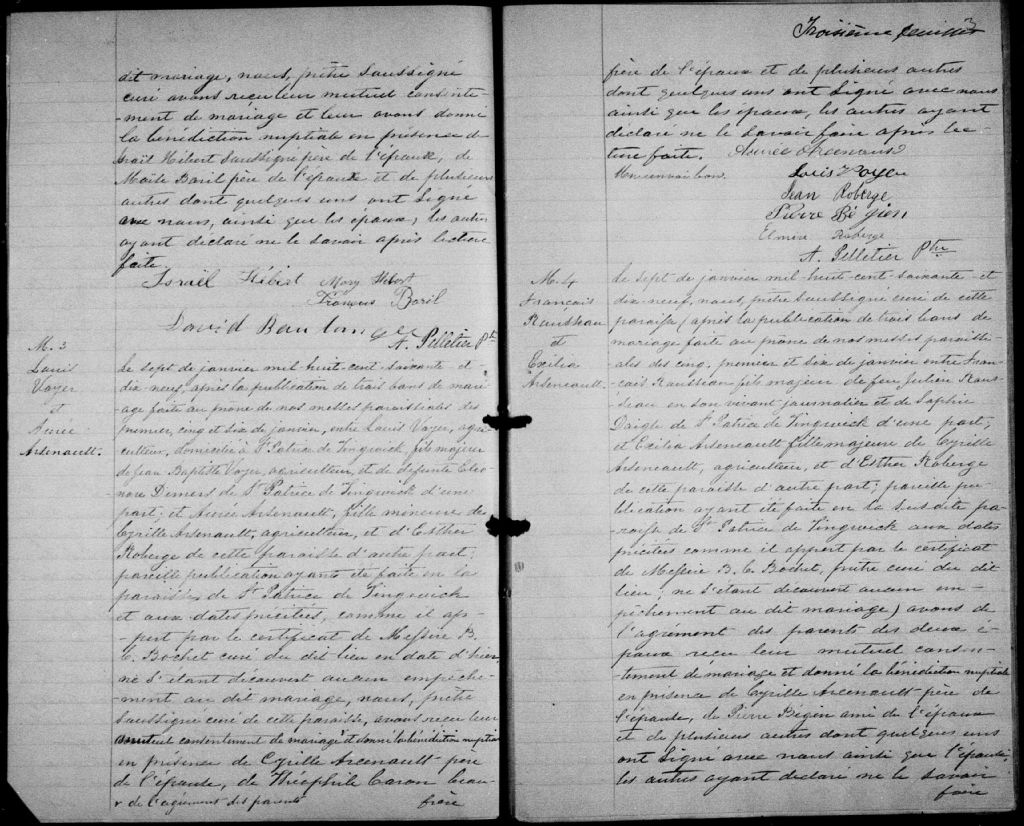 dit mariage, nous, prêtre soussigné
curé avons reçu leur mutuel consente
-ment de mariage et leur avons donné
la bénédiction nuptiale en présence d
Israël Hébert soussigné père de l'époux, de
Moïse Baril père de l'épouse et de plusieurs
autres dont quelques uns ont signé
avec nous, ainsi que les époux, les autres
ayant déclaré ne le savoir après lecture
faite.
Israël Hébert Mary Hebert
François Baril
David
A. Pelletier Ptre
M. 3
Louis
Voyer
et
Aurée
Arsenault.
Le sept de janvier mil huit-cent-soixante et
dix-neuf, après la publication de trois bans de mari-
age faite au prône de nos messes paroissiales des
premier, cinq et six de janvier, entre Louis Voyer, agri-
culteur, domicilié à St Patrice de Tingwick, fils majeur
de Jean Baptiste Voyer, agriculteur, et de défunte Eléo-
nore Demers de St Patrice de Tingwick d'une
part; et Aurée Arsenault, fille mineure de
Cyrille Arsenault, agriculteur, et d'Esther
Roberge de cette paroisse d'autre part;
pareille publication ayant été faite en la
paroisse de St Patrice de Tingwick
et aux dates précitées, comme il ap-
-pert par le certificat de Messire B.
C. Bochet curé du dit lieu en date d'hier,
ne s'étant découvert aucun empêche-
ment au dit mariage, nous, prêtre
soussigné curé de cette paroisse, avons reçu leur
mutuel consentement de mariage et donné la bénédiction nuptiale
en présence de Cyrille Arcenault père
de l'épouse, de Théophile Caron beau-
frère
de l'agrément des parents
Troisième feuillet
3
père de l'époux et de plusieurs autres
dont quelques uns ont signé avec nous
ainsi que les époux, les autres ayant
déclaré ne le savoir faire après lec
ture faite. Aurée Arcenault
Louis Voyer
Jean Roberge
Pierre Bégien
Elmire Roberge
A. Pelletier Ptre
M. 4
François
Rousseau
et
Exilia
Arseneault
Le sept de janvier mil huit-cent-soixante-et
dix-neuf, nous, prêtre soussigné curé de cette
paroisse (après la publication de trois bans de
mariage faite au prône de nos messes paroissi-
ales des cinq, premier et six de janvier entre Fran-
çois Rousseau fils majeur de feu Julien Rous-
seau en son vivant journalier et de Sophie
Daigle de St Patrice de Tingwick d'une part;
et Exilia Arseneault fille majeure de Cyrille
Arseneault, agriculteur, et d'Esther Roberge
de cette paroisse d'autre part; pareille pu-
blication ayant été faite en la susdite pa-
roisse de St Patrice de Tingwick aux dates
précitées comme il appert par le certificat
de Messire B. C. Bochet, prêtre curé du dit
lieu; ne s'étant découvert aucun em-
pêchement au dit mariage) avons de
l'agrément des parents des deux é-
poux reçu leur mutuel consen-
tement de mariage et donné la bénédiction nuptiale
en présence de Cyrille Arcenault père de
l'épouse, de Pierre Bégin ami de l'époux
et de plusieurs autres dont quelques uns
ont signé avec nous ainsi que l'épouse,
les autres ayant déclaré ne le savoir
faire